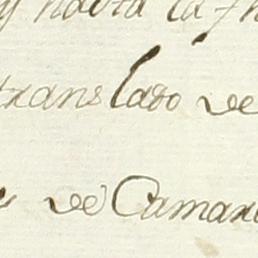 y hasta la
translado de
de Camar